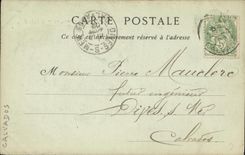 CARTE POSTALE
Ce côté est exclusivement réservé à l'adresse
Monsieur Pierre Mauclerc
futur ingénieur
Dives s/ Mer
Calvados
CALVADOS